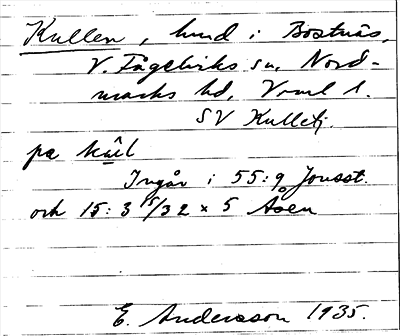 Kullen, hmd i Bostnäs,
V. Fågelviks sn, Nord-
marks hd, Vrml l.
SV Kulletj.
på
Ingår i 55:9 Jonsst.
och 15:3 15/32 x 5 Åsen
E. Andersson 1935.